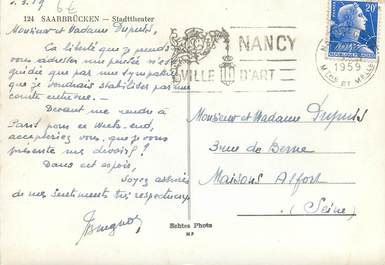 124 SAARBRÜCKEN — Stadttheater
6€
Monsieur et Madame Dupuis,
La liberté que je prends
vous adresser ma pensée n'est
guidée que par ma sympathie
que je voudrais stabiliser par une
courte entrevue. —
Devant me rendre à
Paris pour ce Week-end,
accepteriez vous, que je vous
présente mes devoirs ?
Dans cet espoir,
Soyez assurés
de mes sentiments très respectueux
Echtes Photo
NANCY
VILLE D'ART
1959
MTHE ET MELLE
20F
Monsieur et Madame Dupuis
3 rue de Berne
Maisons Alfort
(Seine)